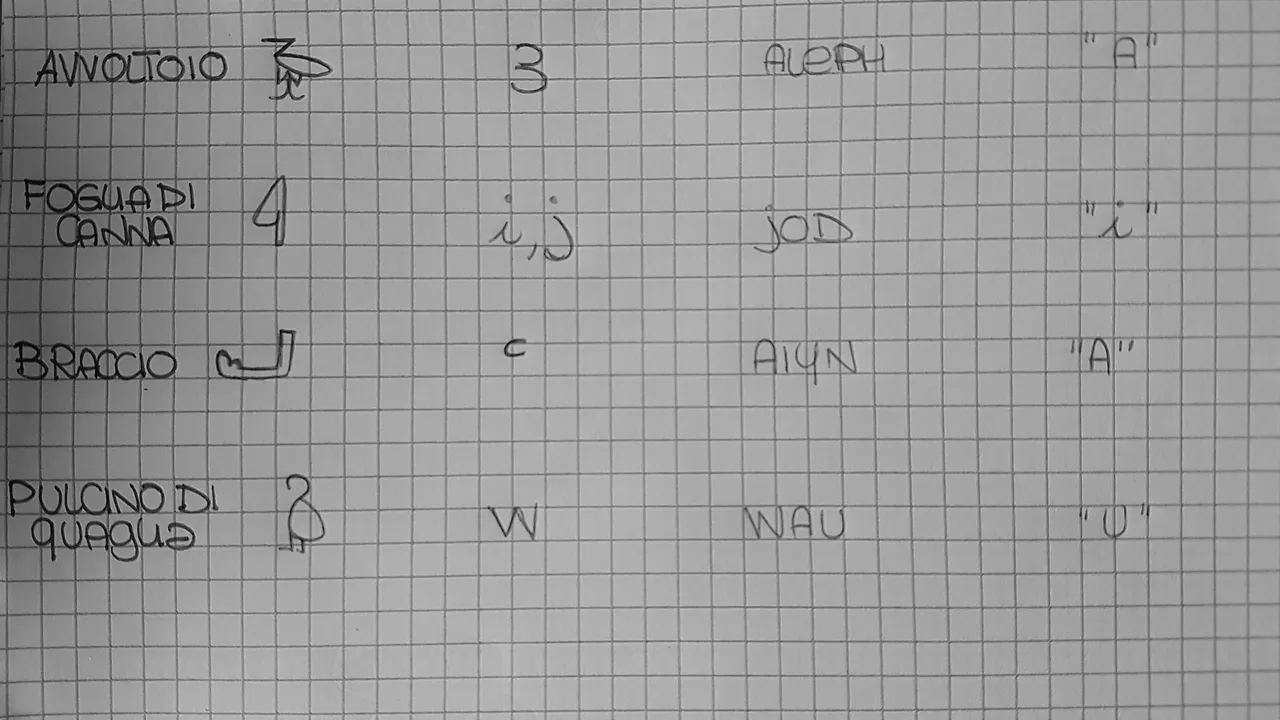 AVVOLTOIO 3 ALEPH "A"
FOGLIA DI
CANNA i,j JOD "i"
BRACCIO c AIYN "A"
PULCINO DI
QUAGLIA W WAU "U"